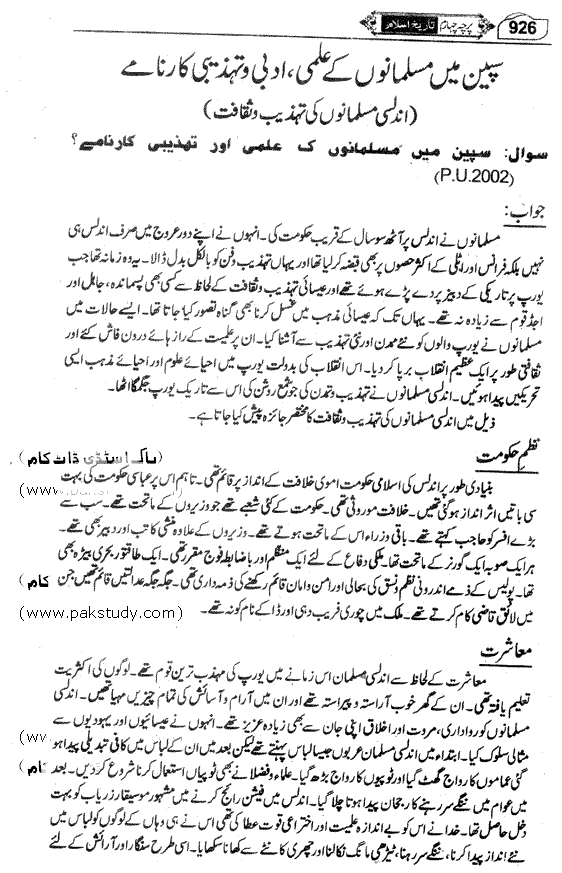 926
پرچہ چہارم تاریخ اسلام
سپین میں مسلمانوں کے علمی، ادبی و تہذیبی کارنامے
(اندلسی مسلمانوں کی تہذیب و ثقافت)
سوال: سپین میں مسلمانوں ک علمی اور تہذیبی کارنامے؟
(P.U.2002)
جواب:
مسلمانوں نے اندلس پر آٹھ سو سال کے قریب حکومت کی۔ انہوں نے اپنے دور عروج میں صرف اندلس ہی
نہیں بلکہ فرانس اور اٹلی کے اکثر حصوں پر بھی قبضہ کر لیا تھا اور یہاں تہذیب و فن کو بالکل بدل ڈالا۔ یہ وہ زمانہ تھا جب
یورپ پر تاریکی کے دبیز پردے پڑے ہوئے تھے اور عیسائی تہذیب و ثقافت کے لحاظ سے کسی بھی پسماندہ، جاہل اور
اجڈ قوم سے زیادہ نہ تھے۔ یہاں تک کہ عیسائی مذہب میں غسل کرنا بھی گناہ تصور کیا جاتا تھا۔ ایسے حالات میں
مسلمانوں نے یورپ والوں کو نئے تمدن اور نئی تہذیب سے آشنا کیا۔ ان پر علمیت کے راز ہائے درون فاش کئے اور
ثقافتی طور پر ایک عظیم انقلاب برپا کر دیا۔ اس انقلاب کی بدولت یورپ میں احیائے علوم اور احیائے مذہب ایسی
تحریکیں پیدا ہوئیں۔ اندلسی مسلمانوں نے تہذیب و تمدن کی جو شمع روشن کی اس سے تاریک یورپ جگمگا اٹھا۔
ذیل میں اندلسی مسلمانوں کی تہذیب و ثقافت کا مختصر جائزہ پیش کیا جاتا ہے۔
نظم حکومت
(پاک اسٹڈی ڈاٹ کام)
بنیادی طور پر اندلس کی اسلامی حکومت اموی خلافت کے انداز پر قائم تھی۔ تاہم اس پر عباسی حکومت کی بہت
(www.
سی باتیں اثر انداز ہو گئی تھیں۔ خلافت موروثی تھی۔ حکومت کے کئی شعبے تھے جو وزیروں کے ماتحت تھے۔ سب سے
بڑے افسر کو حاجب کہتے تھے۔ باقی وزراء اس کے ماتحت ہوتے تھے۔ وزیروں کے علاوہ منشی کاتب اور دبیر بھی تھے۔
ہر ایک صوبہ ایک گورنر کے ماتحت تھا۔ ملکی دفاع کے لئے ایک منظم اور باضابطہ فوج مقرر تھی۔ ایک طاقتور بحری بیڑہ بھی
تھا۔ پولیس کے ذمے اندرونی نظم و نسق کی بحالی اور امن و امان قائم رکھنے کی ذمہ داری تھی۔ جگہ جگہ عدالتیں قائم تھیں جن
کام)
میں لائق قاضی کام کرتے تھے۔ ملک میں چوری فریب دہی اور ڈاکے نام کو نہ تھے۔
(www.pakstudy.com)
معاشرت
معاشرت کے لحاظ سے اندلسی مسلمان اس زمانے میں یورپ کی مہذب ترین قوم تھے۔ لوگوں کی اکثریت
تعلیم یافتہ تھی۔ ان کے گھر خوب آراستہ و پیراستہ تھے اور ان میں آرام و آسائش کی تمام چیزیں مہیا تھیں۔ اندلسی
مسلمانوں کو رواداری، مروت اور اخلاق اپنی جان سے بھی زیادہ عزیز تھے۔ انہوں نے عیسائیوں اور یہودیوں سے
مثالی سلوک کیا۔ ابتداء میں اندلسی مسلمان عربوں جیسا لباس پہنتے تھے لیکن بعد میں ان کے لباس میں کافی تبدیلی پیدا ہو
(ww
گئی عماموں کا رواج گھٹ گیا اور ٹوپیوں کا رواج بڑھ گیا۔ علماء و فضلا نے بھی ٹوپیاں استعمال کرنا شروع کر دیں۔ بعد
کام)
میں عوام میں ننگے سر رہنے کا رجحان پیدا ہوتا چلا گیا۔ اندلس میں فیشن رائج کرنے میں مشہور موسیقار زریاب کو بہت
دخل حاصل تھا۔ خدا نے اس کو بے اندازہ علمیت اور اختراعی قوت عطا کی تھی اس نے ہی وہاں کے لوگوں کو لباس میں
نئے انداز پیدا کرنا، ننگے سر رہنا، ٹیڑھی مانگ نکالنا اور چھری کانٹے سے کھانا سکھایا۔ اسی طرح سنگار اور آرائش کے لئے